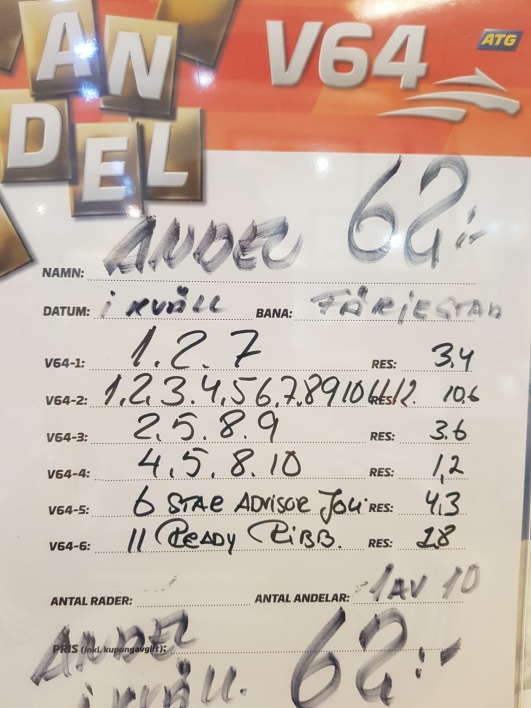 ANDEL
V64
ATG
NAMN: ANDEL 62:-
DATUM: i KVÄLL BANA: FÄRJESTAD
V64-1: 1.2.7 RES: 3.4
V64-2: 1.2.3.4.5 6.7.8 9 10 11 12. RES: 10.6
V64-3: 2.5.8.9 RES: 3.6
V64-4: 4.5.8.10 RES: 1,2
V64-5: 6 STAR ADVISOR JOLI RES: 4,3
V64-6: 11 READY RIBB. RES: 28
ANTAL RADER: ANTAL ANDELAR: 1 AV 10
PRIS (inkl. kupongavgift): ANDEL 62:-
i KVÄLL.